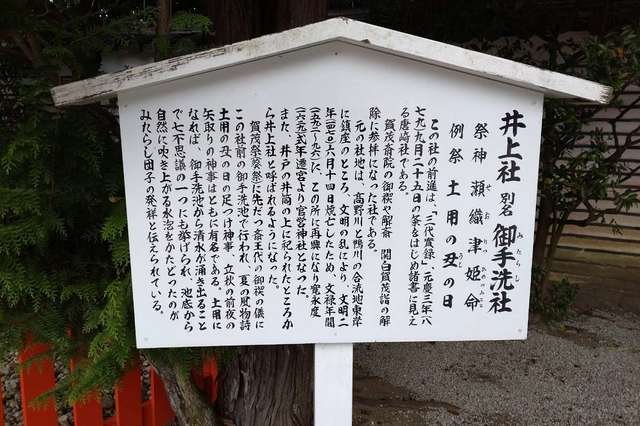 井上社 別名 御手洗社
みたらし
祭神 瀬織津姫命
せ おりつ ひめのみこと
例祭 土用の丑の日
うし
この社の前進は、「三代實録」元慶三年(八
七九)九月二十五日の条をはじめ諸書に見え
る唐崎社である。
賀茂斎院の御禊や解斎 関白賀茂詣の解
除に参拝になった社である。
元の社地は、高野川と鴨川の合流地東岸
に鎮座のところ、文明の乱により、文明二
年(一四七〇)六月十四日焼亡したため、文禄年間
(一五九二〜九六)に、この所に再興になり寛永度
(一六二九)式年遷宮より官営神社となった。
また、井戸の井筒の上に祀られたところか
ら井上社と呼ばれるようになった。
賀茂祭(葵祭)に先だつ斎王代の御禊の儀に
この社前の御手洗池で行われ、夏の風物詩
土用の丑の日の足つけ神事、立秋の前夜の
矢取りの神事はともに有名である。土用に
なれば、御手洗池から清水が湧き出ること
で七不思議の一つにも挙げられ、池底から
自然に吹き上がる水泡をかたどったのが
みたらし団子の発祥と伝えられている。